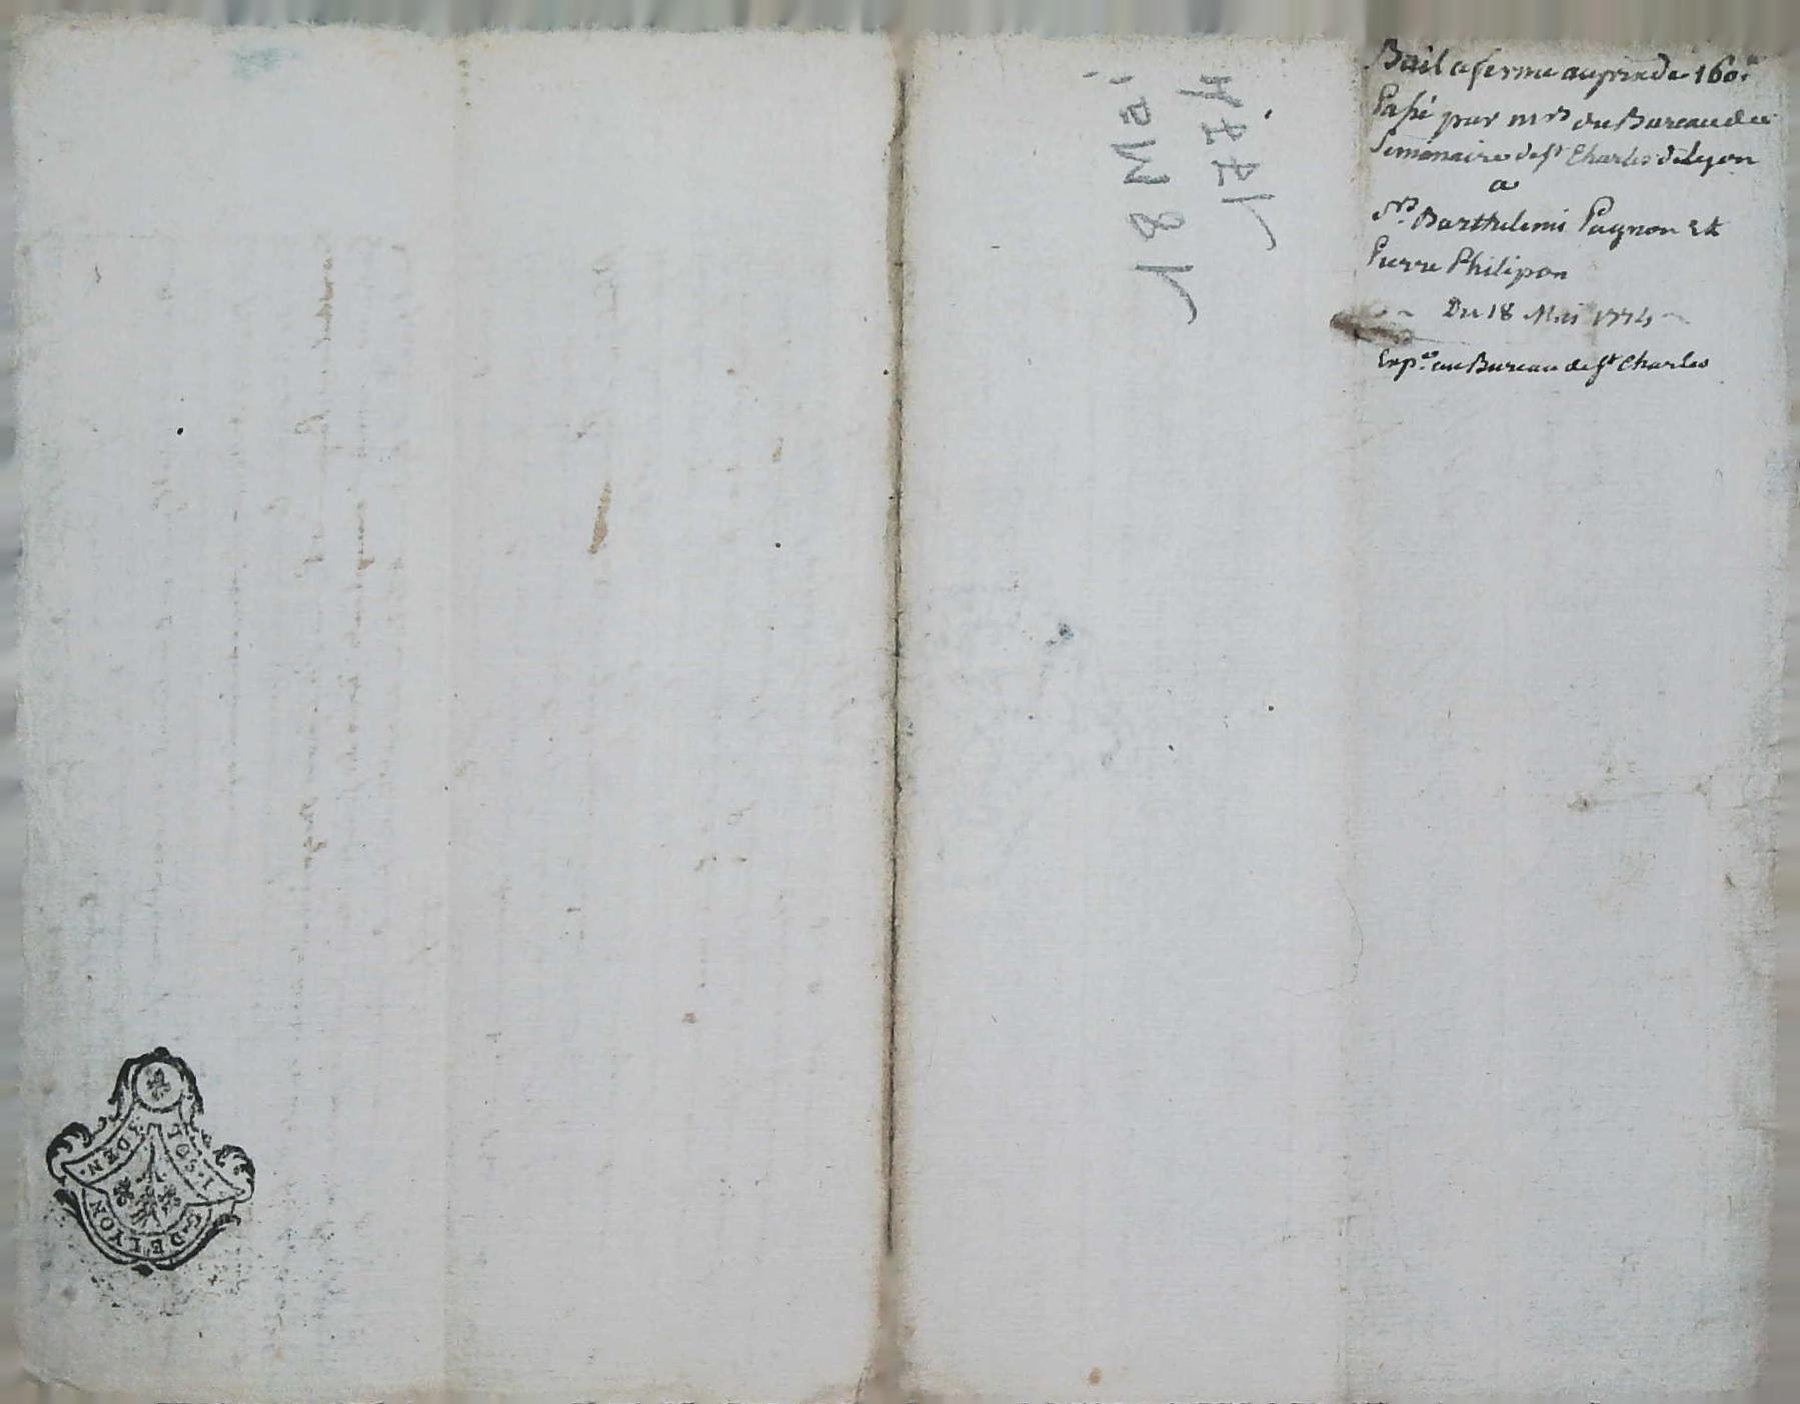 Bail a ferme au prix de 160.ᵗᵗ
Passé par mrs du Bureau du
Seminaire de st Charles de Lyon
a
Srs. Barthelemi Pagnon et
Pierre Philipon
Du 18 Mai 1774
Expon. au Bureau de st Charles
18 Mai
1774
1. SOL
4 DEN.
G. DE LYON